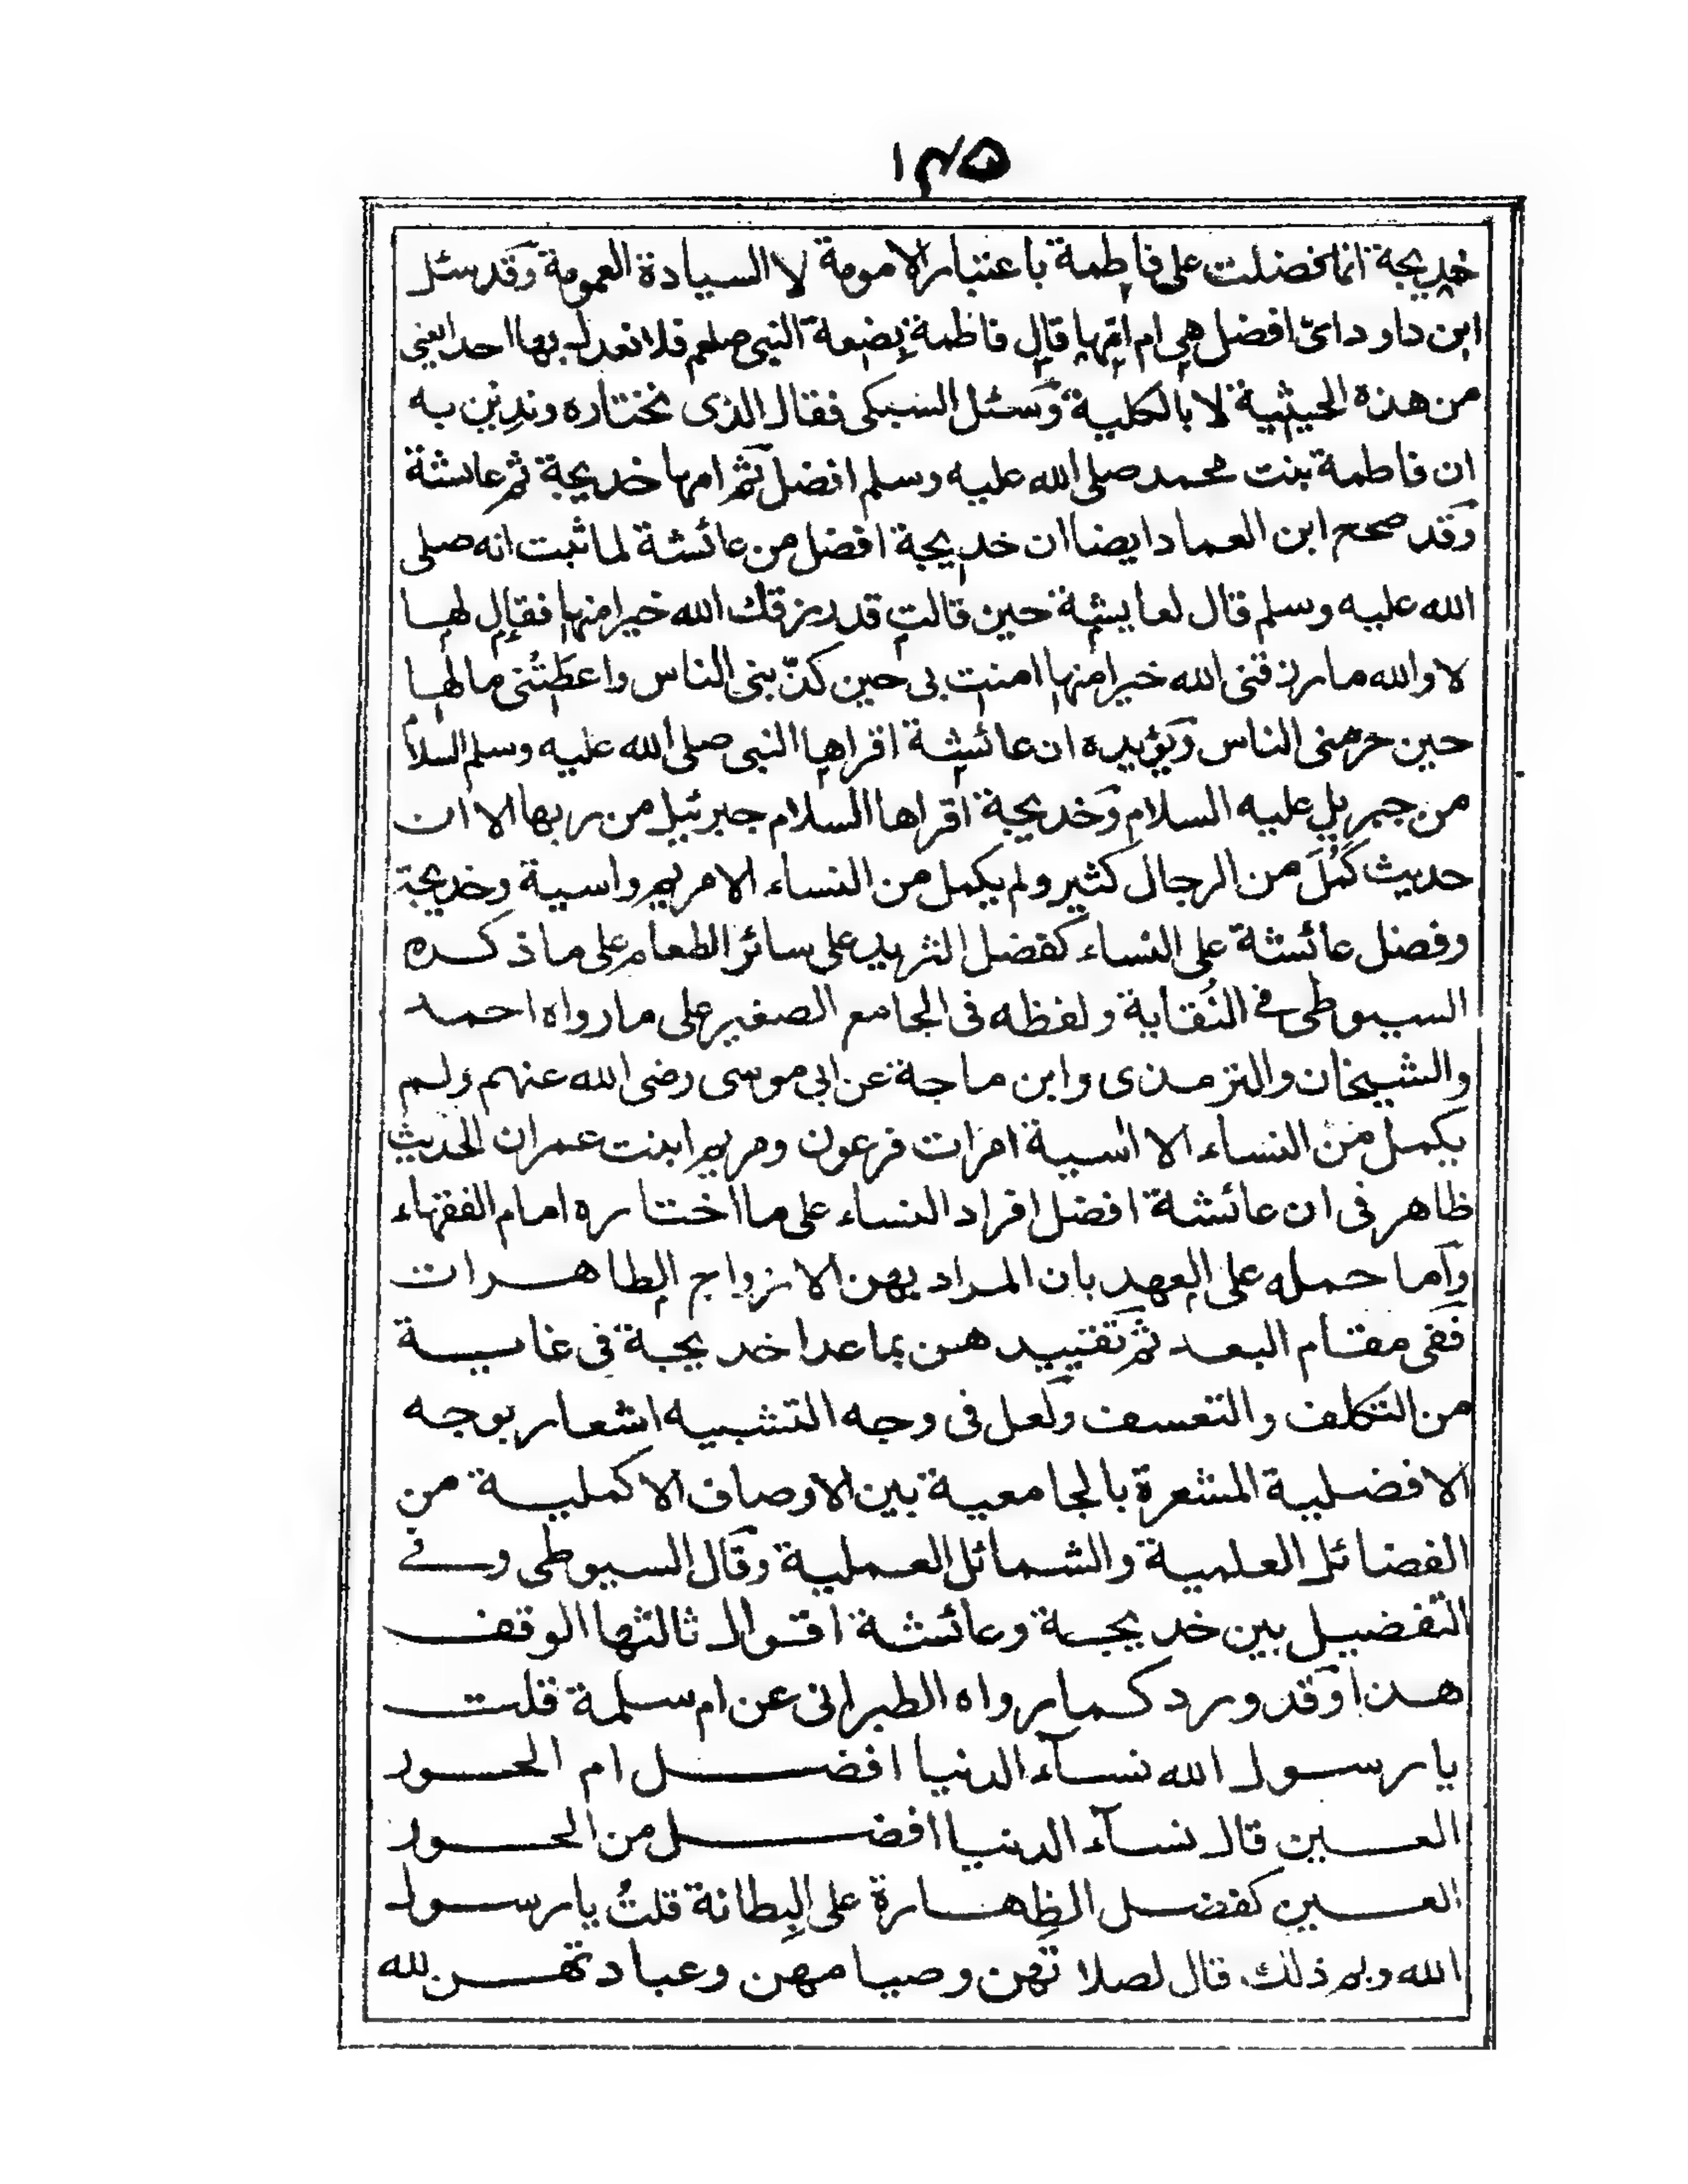 ١٣٥
خديجة انما فضلت على فاطمة باعتبار الامومة لا السيادة العمومة وقد سئل
ابن داود اىّ افضل هى ام امّها قال فاطمة بضعة النبى صلعم فلا نعدل بها احدا يعنى
من هذه الحيثية لا بالكلية وسئل السبكى فقال الذى نختاره وندين به
ان فاطمة بنت محمد صلى الله عليه وسلم افضل ثم امها خديجة ثم عائشة
وقد صحح ابن العماد ايضا ان خديجة افضل من عائشة لما ثبت انه صلى
الله عليه وسلم قال لعايشة حين قالت قد رزقك الله خيرا منها فقال لها
لا والله ما رزقنى الله خيرا منها امنت بى حين كذّبنى الناس واعطتنى مالها
حين حرمنى الناس ويؤيده ان عائشة اقراها النبى صلى الله عليه وسلم السلام
من جبريل عليه السلام وخديجة اقراها السلام جبرئيل من ربها الا ان
حديث كَمُلَ من الرجال كثير ولم يكمل من النساء الا مريم واسية وخديجة
وفضل عائشة على النساء كفضل الثريد على سائر الطعام على ما ذكره
السيوطى فى النُقاية ولفظه فى الجامع الصغير على ما رواه احمد
والشيخان والترمذى وابن ماجة عن ابى موسى رضى الله عنهم ولم
يكمل من النساء الا اسية امرات فرعون ومريم ابنت عمران الحديث
ظاهر فى ان عائشة افضل افراد النساء على ما اختاره امام الفقهاء
وآما حمله على العهد بان المراد بهن الازواج الطاهرات
ففى مقام البعد ثم تقييد هن بماعدا خديجة فى غاية
من التكلف والتعسف ولعل فى وجه التشبيه اشعار بوجه
الافضلية المشعرة بالجامعية بين الاوصاف الاكملية من
الفضائل العلمية والشمائل العملية وقال السيوطى وفى
التفضيل بين خديجة وعائشة اقوال ثالثها الوقف
هذا وقد ورد كما رواه الطبرانى عن ام سلمة قلت
يا رسول الله نسآء الدنيا افضل ام الحور
العين قال نسآء الدنيا افضل من الحور
العين كفضل الظِهارة على البِطانة قلتُ يا رسول
الله وبم ذلك قال لصلاتهن وصيامهن وعبادتهن لله